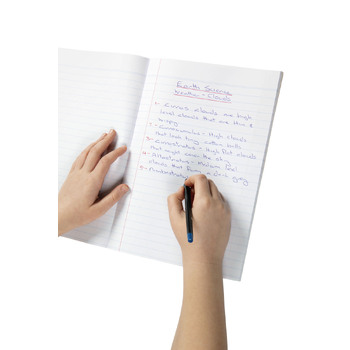 Earth Science
Weather - Clouds
1- Cirrus clouds are high
level clouds that are thin &
wispy
2- Cirrocumulus = High clouds
that look like cotton balls
3- Cirrostratus = High flat clouds
that might cover the sky
4- Altostratus = Medium level
clouds that form a dark gray
5-